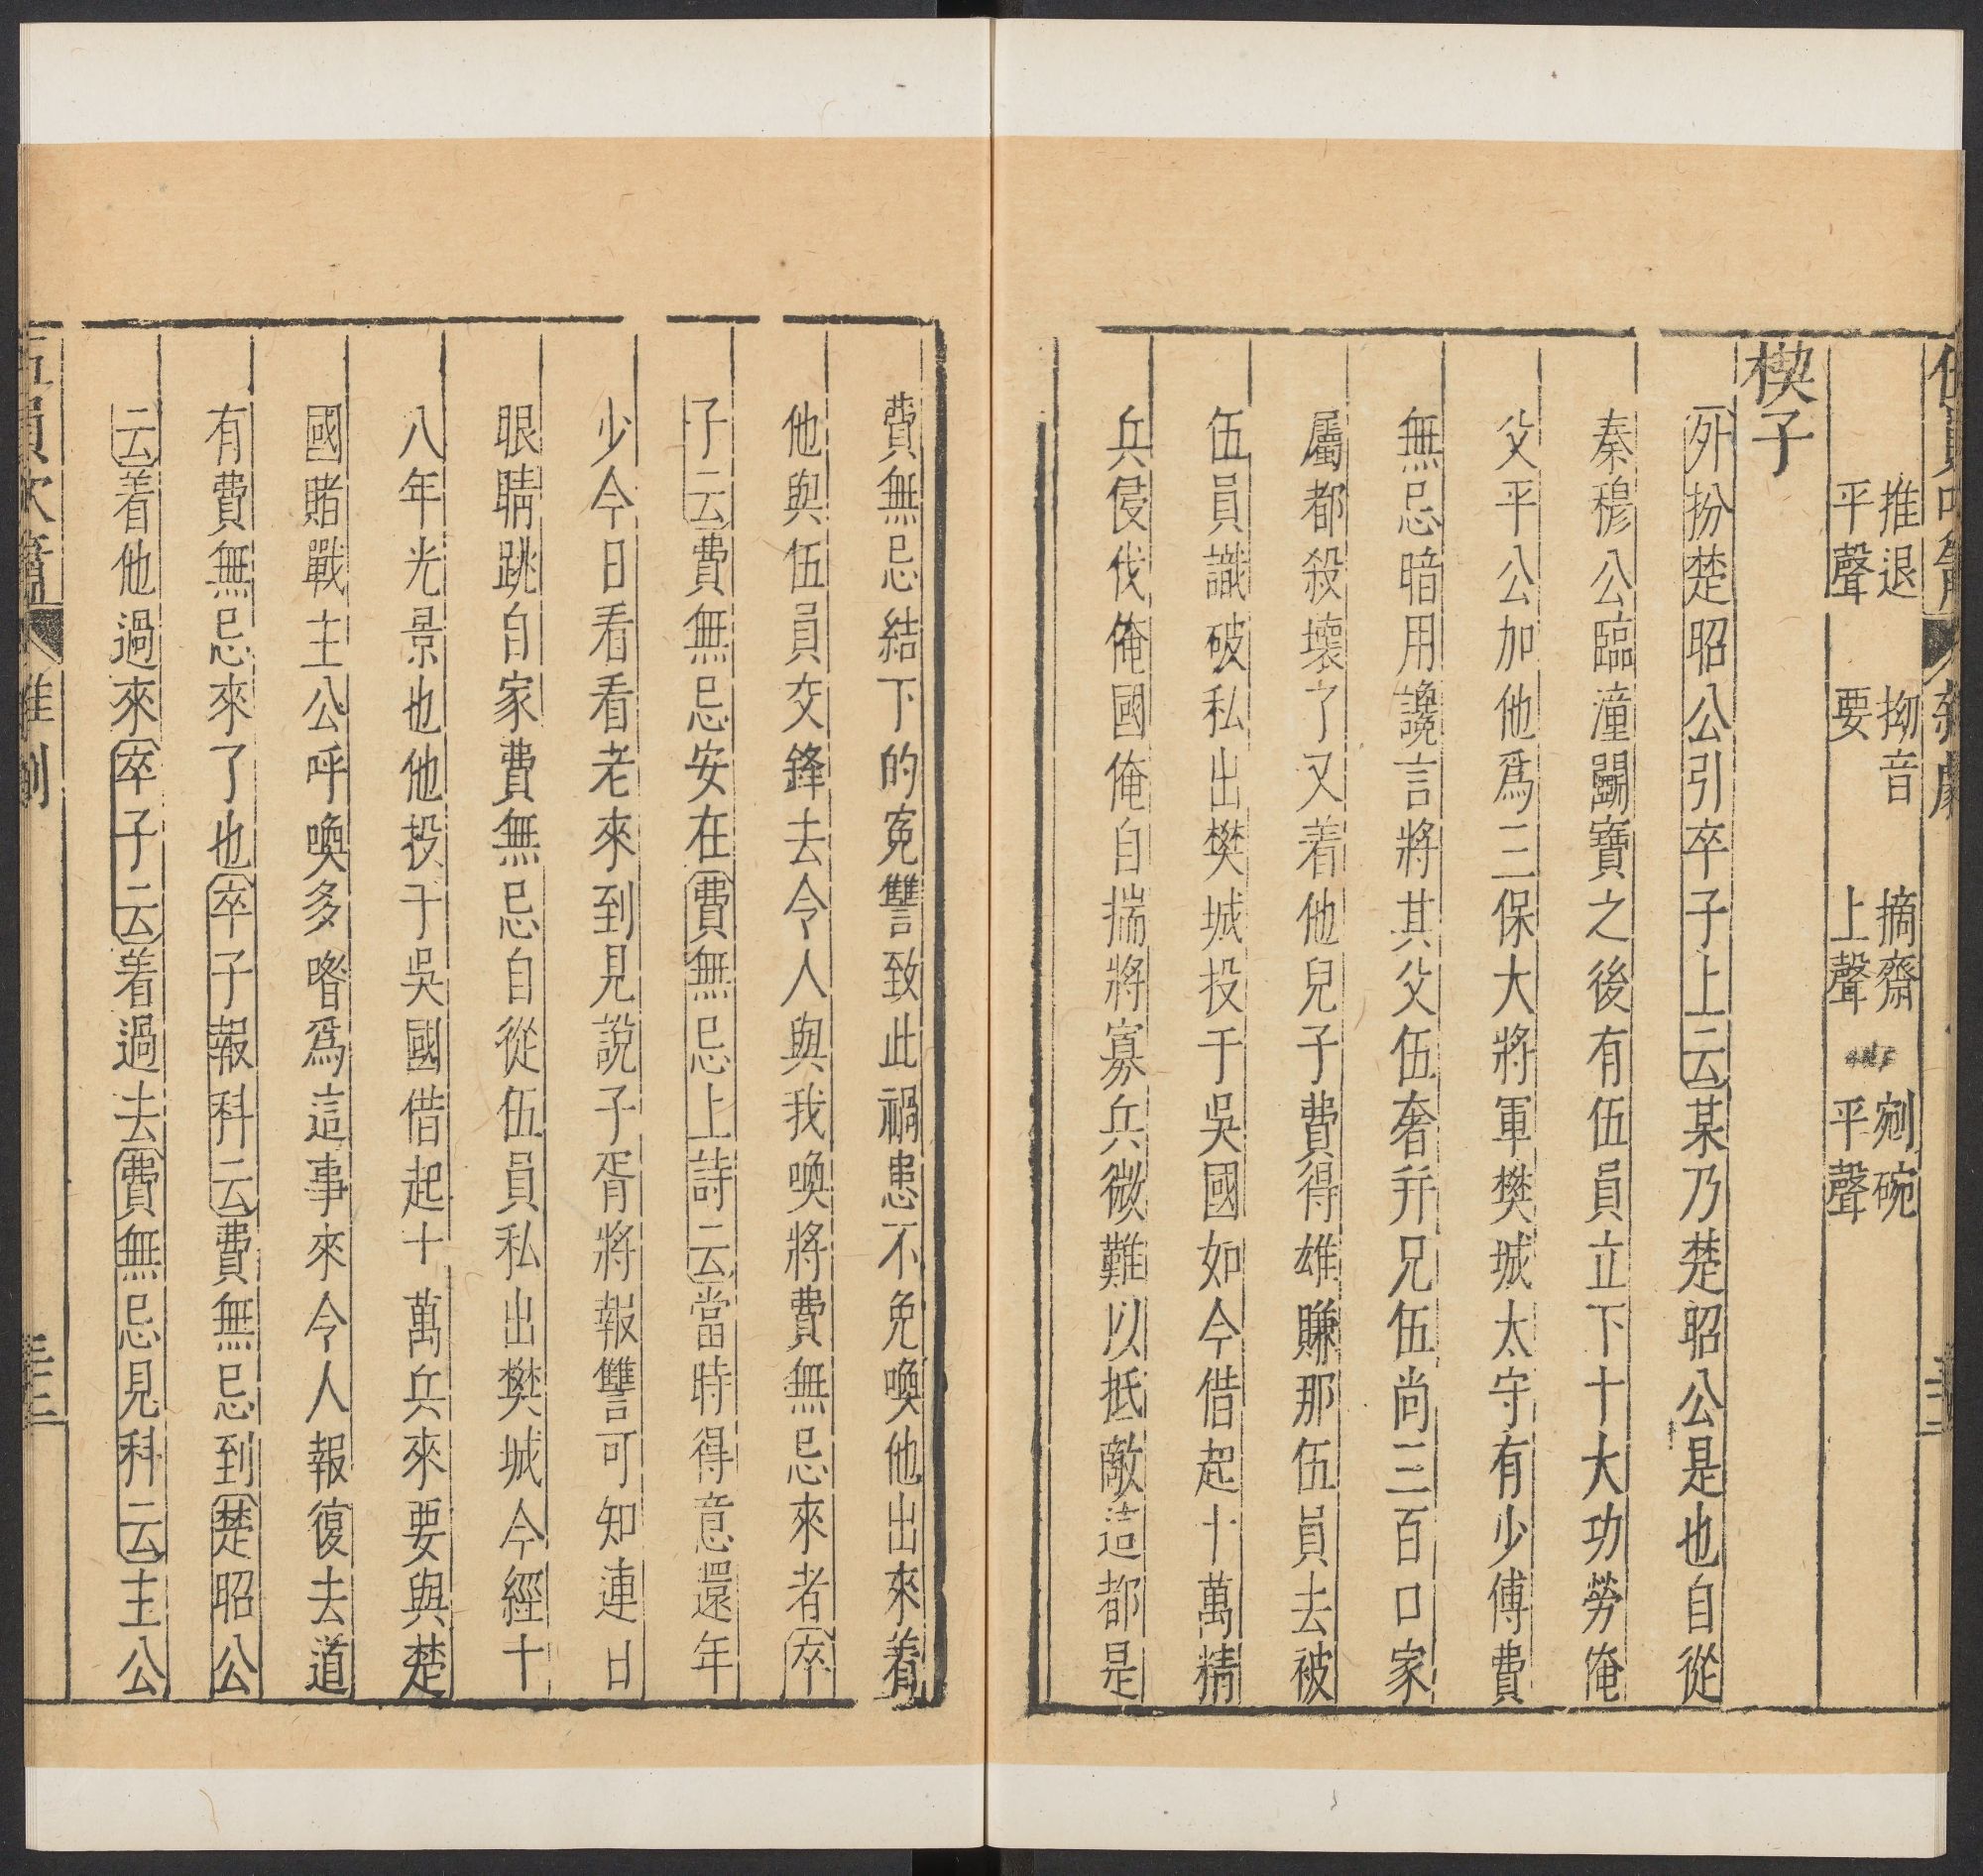 推退平聲　拗音要　摘齋上聲　剜碗平聲
楔子
外扮楚昭公引卒子上云某乃楚昭公是也自從
秦穆公臨潼鬭寶之後有伍員立下十大功勞俺
父平公加他爲三保大將軍樊城太守有少傅費
無忌暗用讒言將其父伍奢幷兄伍尚三百口家
屬都殺壞了又着他兒子費得雄賺那伍員去被
伍員識破私出樊城投于吳國如今借起十萬精
兵侵伐俺國俺自揣將寡兵微難以抵敵這都是
費無忌結下的寃讐致此禍患不免喚他出來着
他與伍員交鋒去令人與我喚將費無忌來者卒
子云費無忌安在費無忌上詩云當時得意還年
少今日看看老來到見說子胥將報讐可知連日
眼睛跳自家費無忌自從伍員私出樊城今經十
八年光景也他投于吳國借起十萬兵來要與楚
國賭戰主公呼喚多喒爲這事來令人報復去道
有費無忌來了也卒子報科云費無忌到楚昭公
云着他過來卒子云着過去費無忌見科云主公